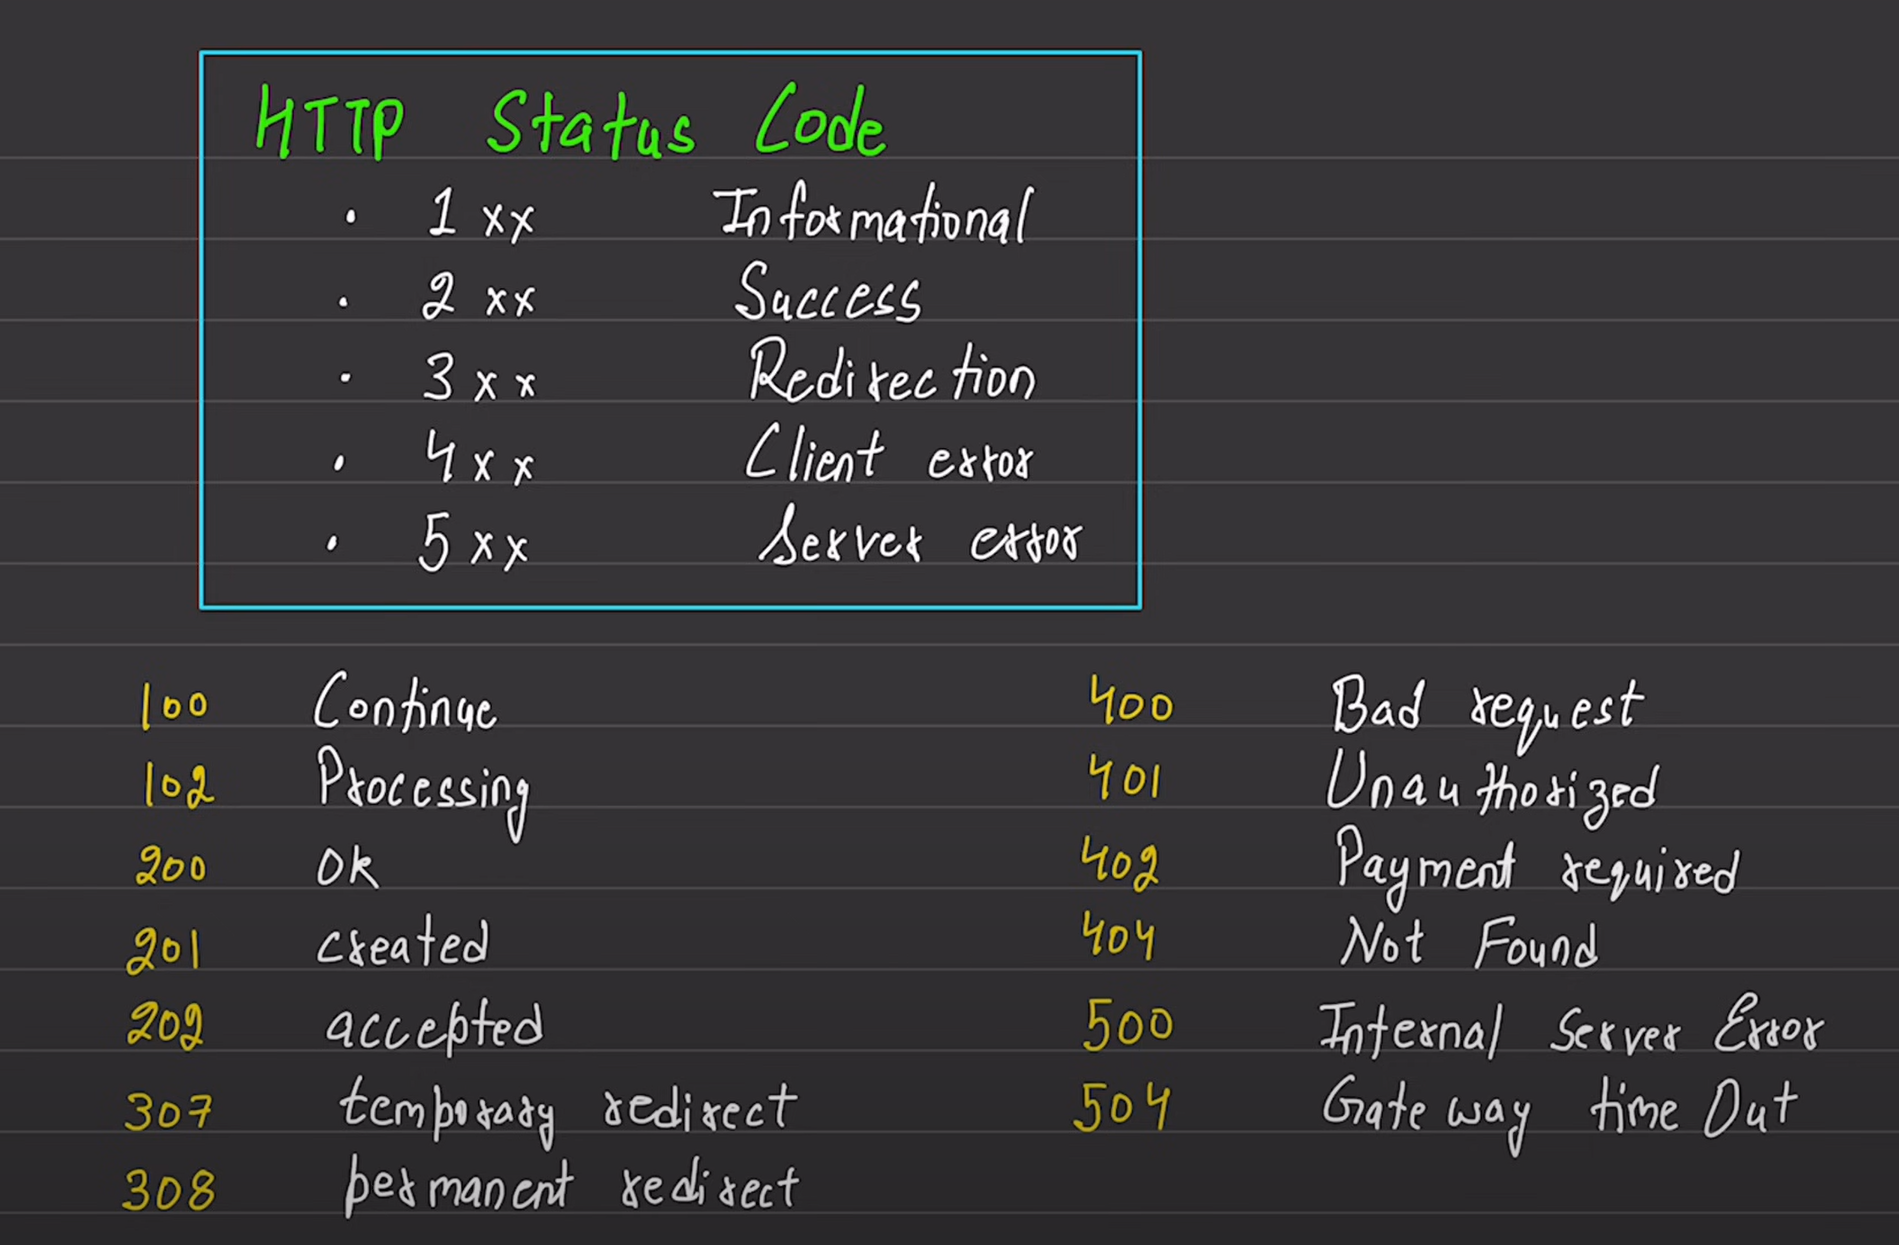 HTTP Status Code
• 1xx Informational
• 2xx Success
• 3xx Redirection
• 4xx Client error
• 5xx Server error
100 Continue
102 Processing
200 Ok
201 created
202 accepted
307 temporary redirect
308 permanent redirect
400 Bad request
401 Unauthorized
402 Payment required
404 Not Found
500 Internal Server Error
504 Gate way time Out